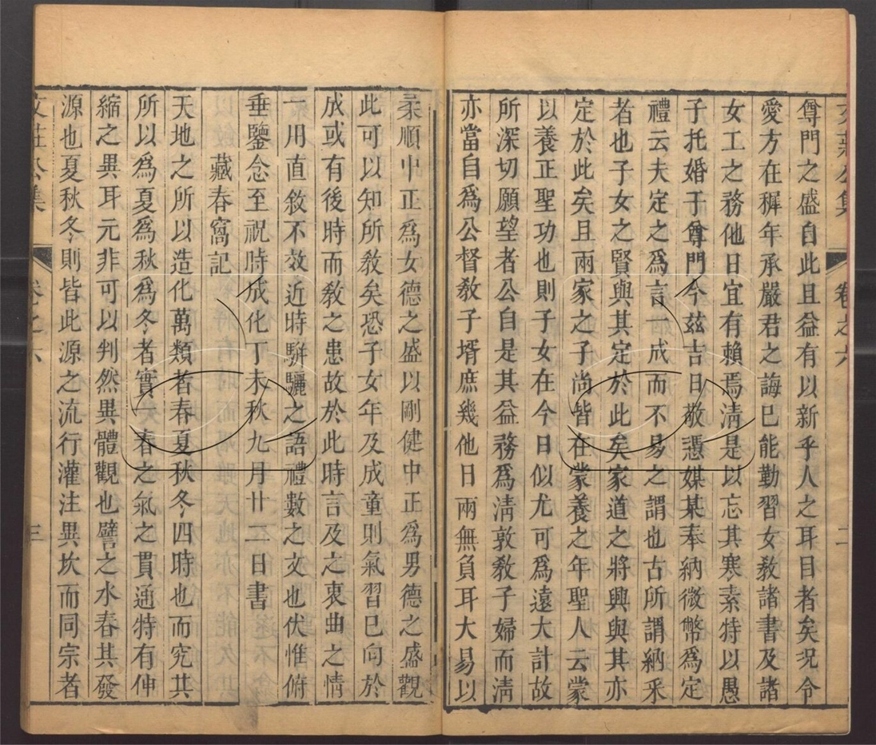 文莊公集 卷之六 二
尊門之盛自此且益有以新乎人之耳目者矣况令
愛方在穉年承嚴君之誨已能勤習女敎諸書及諸
女工之務他日宜有賴焉淸是以忘其寒素特以愚
子托婚于尊門今兹吉日敬憑媒某奉納微幣爲定
禮云夫定之爲言一成而不易之謂也古所謂納采
者也子女之賢與其定於此矣家道之將興與其亦
定於此矣且兩家之子尚皆在蒙養之年聖人云蒙
以養正聖功也則子女在今日似尤可爲遠大計故
所深切願望者公自是其益務爲淸敦敎子婦而淸
亦當自爲公督敎子壻庶幾他日兩無負耳大易以
柔順中正爲女德之盛以剛健中正爲男德之盛觀
此可以知所敎矣恐子女年及成童則氣習已向於
成或有後時而敎之患故於此時言及之衷曲之情
一用直敘不效近時騈驪之語禮數之文也伏惟俯
垂鑒念至祝時成化丁未秋九月廿二日書
藏春窩記
天地之所以造化萬類者春夏秋冬四時也而究其
所以爲夏爲秋爲冬者實一春之氣之貫通特有伸
縮之異耳元非可以判然異體觀也譬之水春其發
源也夏秋冬則皆此源之流行灌注異坎而同宗者
文莊公集 卷之六 三